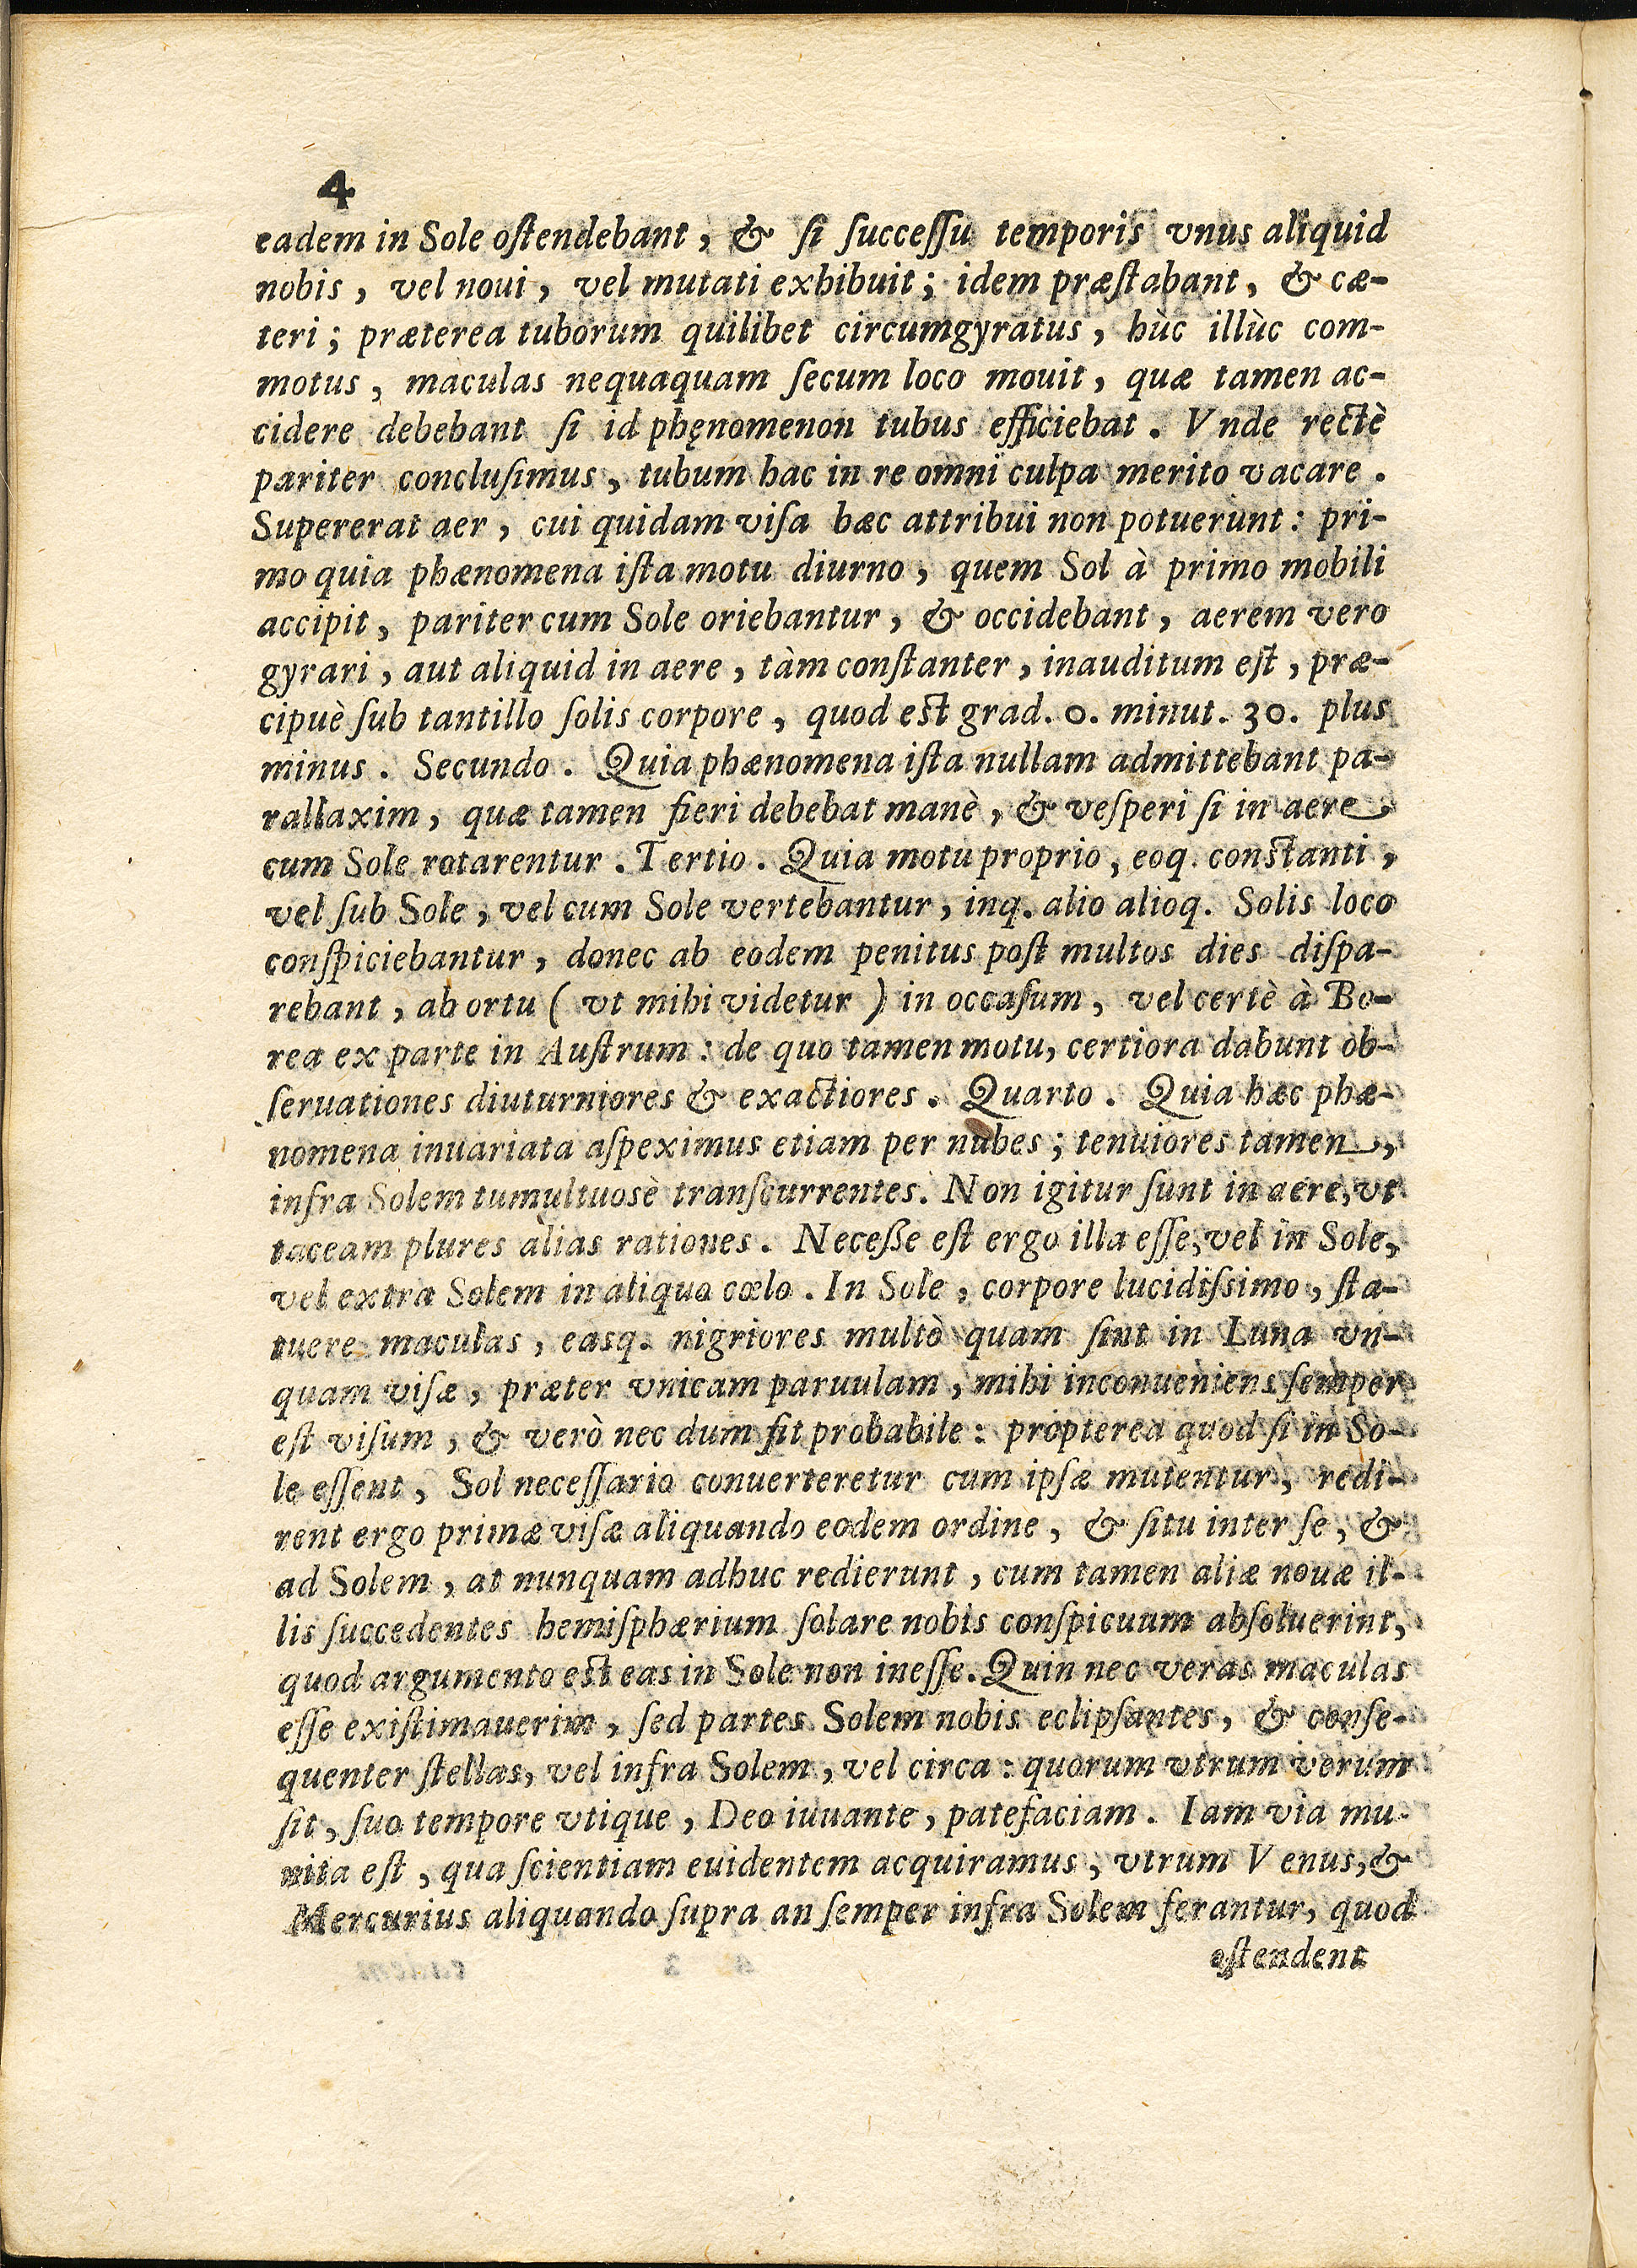 4
eadem in Sole oſtendebant, & ſi ſucceſſu temporis vnus aliquid
nobis, vel noui, vel mutati exhibuit; idem præſtabant, & cæ-
teri; præterea tuborum quilibet circumgyratus, hùc illùc com-
motus, maculas nequaquam ſecum loco mouit, quæ tamen ac-
cidere debebant ſi id phęnomenon tubus efficiebat. Vnde rectè
pariter concluſimus, tubum hac in re omni culpa merito vacare.
Supererat aer, cui quidam viſa hæc attribui non potuerunt: pri-
mo quia phænomena iſta motu diurno, quem Sol à primo mobili
accipit, pariter cum Sole oriebantur, & occidebant, aerem vero
gyrari, aut aliquid in aere, tàm conſtanter, inauditum eſt, præ-
cipuè ſub tantillo ſolis corpore, quod eſt grad. 0. minut. 30. plus
minus. Secundo. Quia phænomena iſta nullam admittebant pa-
rallaxim, quæ tamen fieri debebat manè, & veſperi ſi in aere
cum Sole rotarentur. Tertio. Quia motu proprio, eoq. conſtanti,
vel ſub Sole, vel cum Sole vertebantur, inq. alio alioq. Solis loco
conſpiciebantur, donec ab eodem penitus poſt multos dies diſpa-
rebant, ab ortu (vt mihi videtur) in occaſum, vel certè à Bo-
rea ex parte in Auſtrum: de quo tamen motu, certiora dabunt ob-
ſeruationes diuturniores & exactiores. Quarto. Quia hæc phæ-
nomena inuariata aſpeximus etiam per nubes; tenuiores tamen,
infra Solem tumultuosè tranſcurrentes. Non igitur ſunt in aere, vt
taceam plures alias rationes. Neceſſe eſt ergo illa eſſe, vel in Sole,
vel extra Solem in aliquo cœlo. In Sole, corpore lucidiſsimo, ſta-
tuere maculas, easq. nigriores multò quam ſint in Luna vn-
quam viſæ, præter vnicam paruulam, mihi inconueniens ſemper
eſt viſum, & verò nec dum fit probabile: propterea quod ſi in So-
le eſſent, Sol neceſſario conuerteretur cum ipſæ mutentur, redi-
rent ergo primæ viſæ aliquando eodem ordine, & ſitu inter ſe, &
ad Solem, at nunquam adhuc redierunt, cum tamen aliæ nouæ il-
lis ſuccedentes hemiſphærium ſolare nobis conſpicuum abſoluerint,
quod argumento eſt eas in Sole non ineſſe. Quin nec veras maculas
eſſe exiſtimauerim, ſed partes Solem nobis eclipſantes, & conſe-
quenter ſtellas, vel infra Solem, vel circa: quorum vtrum verum
ſit, ſuo tempore vtique, Deo iuuante, patefaciam. Iam via mu-
nita eſt, qua ſcientiam euidentem acquiramus, vtrum Venus, &
Mercurius aliquando ſupra an ſemper infra Solem ferantur, quod
oſtendent